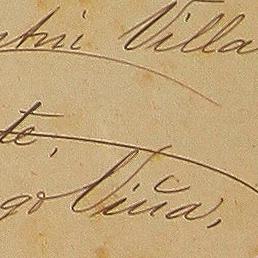 Villa
te,
go Viña,